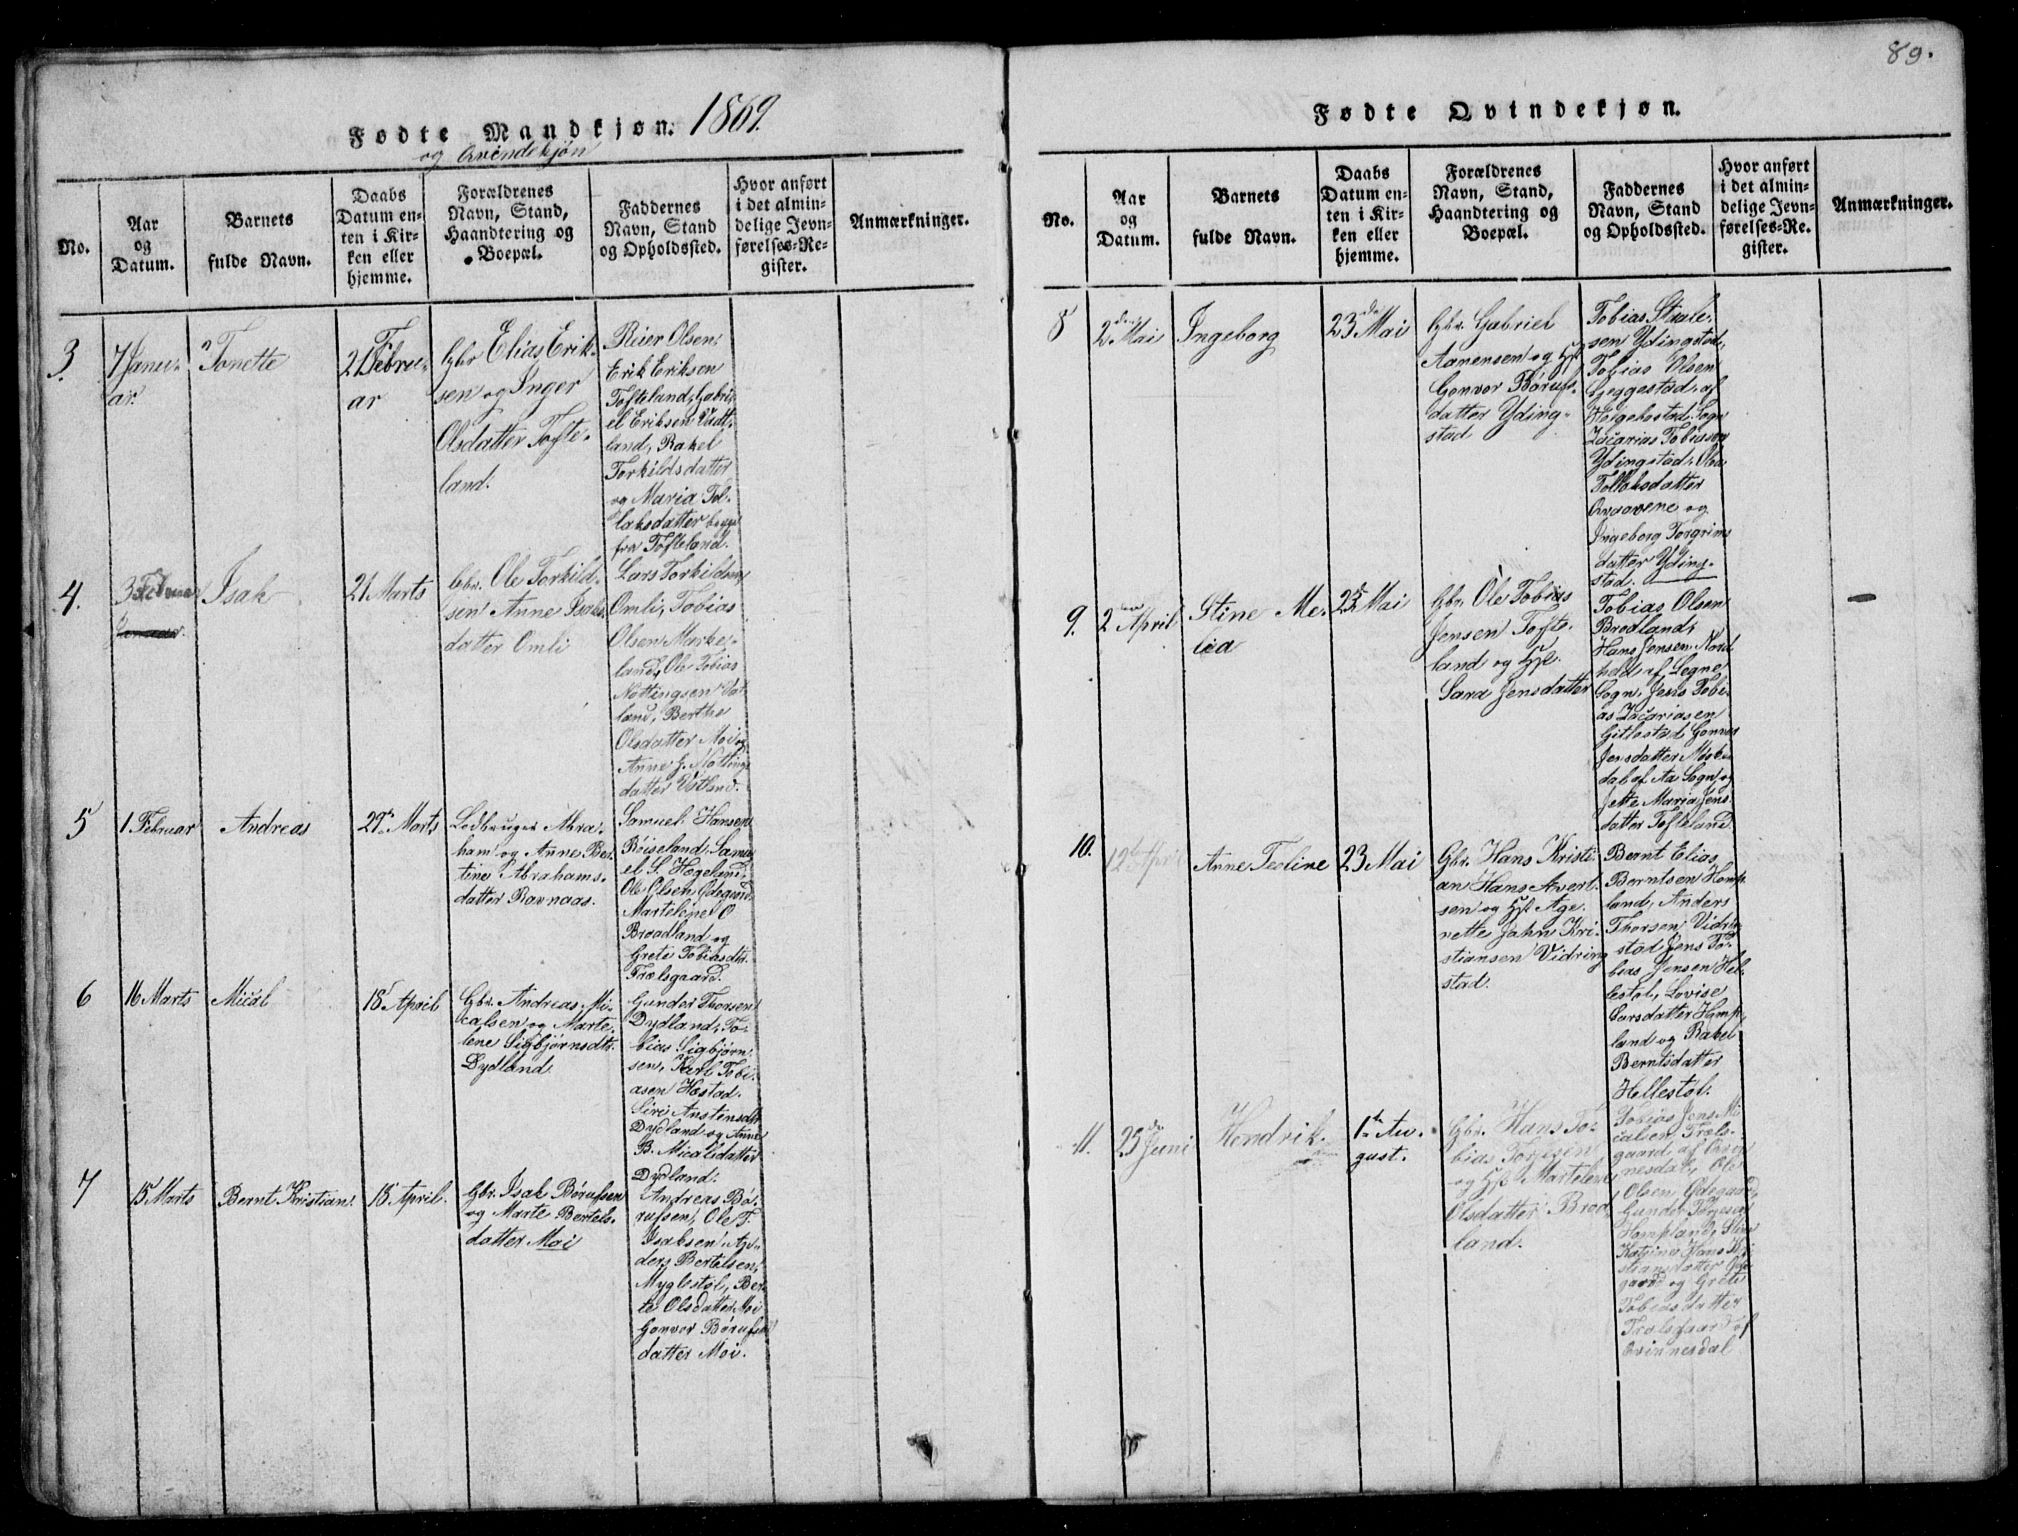 89.
Fødte Mandkjøn. 1869.
og Qvindekjøn
No.
Aar
og
Datum.
Barnets
fulde Navn.
Daabs
Datum en-
ten i Kir-
ken eller
hjemme.
Forældrenes
Navn, Stand,
Haandtering og
Boepæl.
Faddernes
Navn, Stand
og Opholdssted.
Hvor anført
i det almin-
delige Jevn-
førelses-Re-
gister.
Anmærkninger.
3.
7 Janu-
ar.
Tonette
21 Febru-
ar
Gbr. Elias Erik-
sen og Inger
Olsdatter Tofte-
land.
Reier Olsen,
Erik Eriksen
Tofteland, Gabri-
el Eriksen Vadt-
land, Rakel
Torkildsdatter
og Maria Tol-
laksdatter begge
fra Tofteland.
4.
3 Februar
Januar.
Isak
21 Marts
Gbr. Ole Torkild-
sen Anne Isaks-
datter Omli
Lars Torkildsen
Omli, Tobias
Olsen Marke-
land, Ole Tobias
Nottingsen Vat-
land, Berthe
Olsdatter Moi og
Anne G. Nottings
datter Vatland.
5
1 Februar
Andreas
29 Marts
Ledbruger Abra-
ham og Anne Ber-
tine Abrahams-
datter Ravnaas.
Samuel Hansen
Røiseland, Samu-
el S. Høgeland,
Ole Olsen Ødegaard
Martelene O
Braadland og
Grete Tobiasdtr.
Trælsgaard.
6
16 Marts
Mical
18 April
Gbr. Andreas Mi-
calsen og Marte-
lene Sigbjørnsdtr.
Dydland
Gunder Thorsen
Dydland, To-
bias Sigbjørn-
sen, Karl Tobi-
asen Hæstad.
Siri Anstensdtr
Dydland og Anne
B. Micalsdatter
Dydland.
7
15 Marts
Bernt Kristian.
18 April.
Gbr. Isak Børufsen
og Marte Bertels-
datter Moi
Andreas Bø-
rufsen, Ole T.
Isaksen An-
ders Bertelsen,
Myglestøl, Ber-
te Olsdatter Moi
Gonvor Børufs-
datter Moi.
Fødte Qvindekjøn.
No.
Aar
og
Datum.
Barnets
fulde Navn.
Daabs
Datum en-
ten i Kir-
ken eller
hjemme.
Forældrenes
Navn, Stand,
Haandtering og
Boepæl.
Faddernes
Navn, Stand
og Opholdssted.
Hvor anført
i det almin-
delige Jevn-
førelses-Re-
gister.
Anmærkninger.
8
2den Mai
Ingeborg
23de Mai
Gbr. Gabriel
Aanensen og Hst
Gonvor Børufs-
datter Yding-
stad
Tobias Staale-
sen Ydingstad,
Tobias Olsen
Leggestad, af
Hægebostad Sogn
Zacarias Tobiasen
Ydingstad, Olea
Tollaksdatter
og
Ingeborg Torgrims
datter Yding-
stad.
9.
2den April
Stine Me-
lia
23 Mai
Gbr. Ole Tobias
Jensen Tofte-
land og Hst.
Sara Jensdatter
Tobias Olsen
Brodland,
Hans Jensen
af Søgne
Sogn, Jens Tobi-
as Zacariasen
Gitlestad Gonvor
Jensdatter
dal af Aa Sogn og
Jette Maria Jens-
datter Tofteland
10.
12te April
Anne Teoline
23 Mai
Gbr. Hans Kristi-
an Hans Avert-
sen og Hst Age-
nette Jahn Kri-
stiansen Vidring
stad.
Bernt Elias
Berntsen Homp-
land, Anders
Thorsen Vidring-
stad Jens To-
bias Jensen Hel-
lestøl, Lovise
Larsdatter Homp-
land og Rakel
Berntsdatter
Hellestøl.
11.
25de Juni
Hendrik.
1ste Au-
gust.
Gbr. Hans To-
bias Torjesen
og Hst Martelene
Olsdatter Brod-
land.
Tobias Jens Mi-
calsen, Træls-
gaard af Qvin-
nesdal, Ole
Olsen Ødegaard,
Gunder Torjesen
Hompland, Stine
Katrine Hans Kri-
stiansdatter Øde-
gaard og Grete
Tobiasdatter
Trælsgaard af
Qvinnesdal